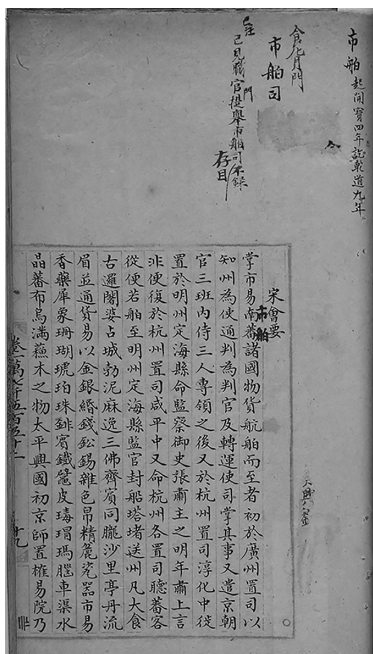 市舶 起開寶四年訖乾道九年
市舶司
已見職官門提舉市舶司不錄
存目
宋會要
市舶
掌市易南蕃諸國物貨航舶而至者初於廣州置司以
知州為使通判為判官及轉運使司掌其事又遣京朝
官三班內侍三人專領之後又於杭州置司淳化中徙
置於明州定海縣命監察御史張肅主之明年肅上言
非便復於杭州置司咸平中又命杭州各置司聽蕃客
從便若舶至明州定海縣監官封船塔堵送州凡大食
古邏闍婆占城勃泥麻逸三佛齊賓同朧沙里亭丹流
眉並通貨易以金銀緡錢鉛錫雜色帛精麄瓷器市易
香藥犀象珊瑚琥珀珠琲賓鐵鼊皮瑇瑁瑪腦車渠水
晶蕃布烏滿蘇木之物太平興國初京師置榷易院乃
卷一萬七千五百五十二 十九